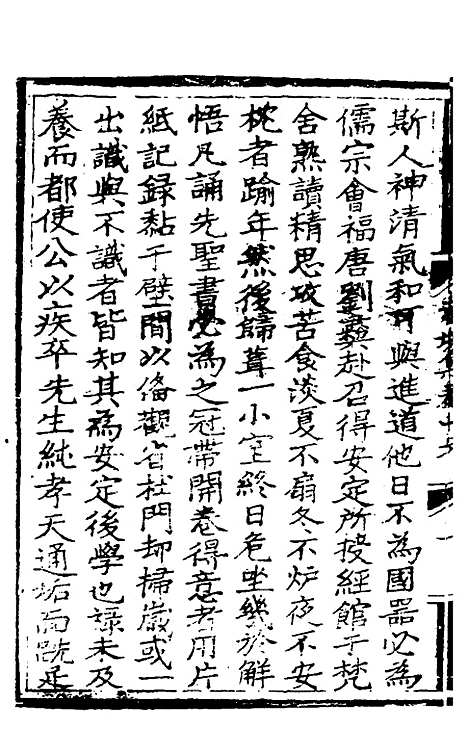 斯人神清氣和可與進道他日不為國器必為
儒宗會福唐劉彝赴召得安定所授經館于梵
舍熟讀精思攻苦食淡夏不扇冬不炉夜不安
枕者踰年然後歸葺一小室終日危坐幾於解
悟凡誦先聖書必為之冠帶開卷得意者用片
紙記録黏于壁間以俻觀省杜門却掃歲或一
出識與不識者皆知其為安定後學也禄未及
養而都使公以疾卒先生純孝天通垢面跣足